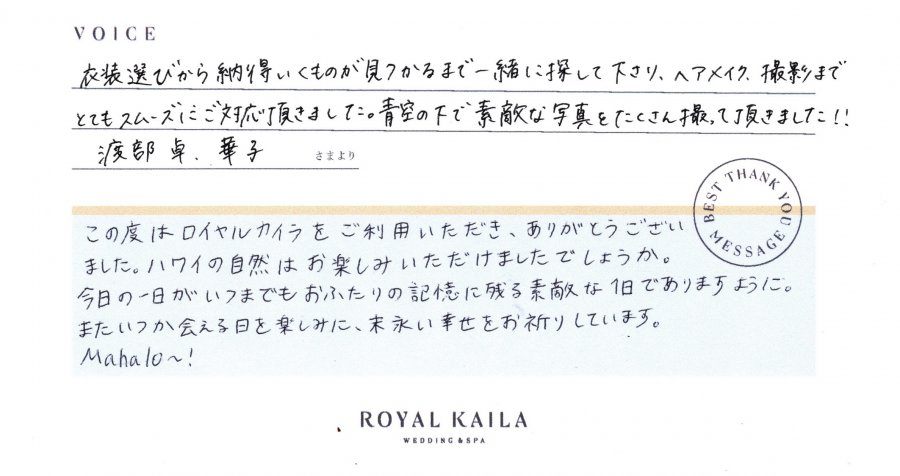 VOICE
衣装選びから納得いくものが見つかるまで一緒に探して下さり、ヘアメイク、撮影まで
とてもスムーズにご対応頂きました。青空の下で素敵な写真をたくさん撮って頂きました!!
渡部 卓、華子 さまより
BEST THANK YOU MESSAGE
この度はロイヤルカイラをご利用いただき、ありがとうござい
ました。ハワイの自然はお楽しみいただけましたでしょうか。
今日の一日がいつまでもおふたりの記憶に残る素敵な1日でありますように。
またいつか会える日を楽しみに、末永い幸せをお祈りしています。
Mahalo〜!
ROYAL KAILA
WEDDING & SPA